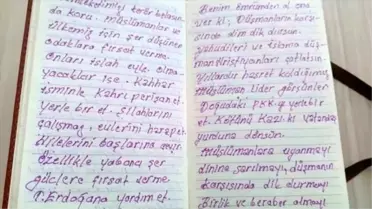 da koru. Müslümanlar ve
ülkemiz için şer düşünen
odaklara fırsat verme.
Onları ıslah eyle olma-
yacaklar ise. Kahhar
isminle kahrı perişan et.
yerle bir et. Silahlarını
çalışmaz, evlerini harap et
Özellikle yabancı şer
güçlere fırsat verme
T. Erdoğana yardım et.
Benim ömrümden al ona
ver ki, Düşmanların karşı-
sında dim dik dursun.
yahudileri ve islama düş-
man Hristiyanları çatlatsın.
Yıllardır hasret kaldığımız
Müslüman lider görsünler
Doğudaki PKK yı yerle bir
et. Kökünü kazı ki vatanım
yurduna dönsün.
Müslümanlara uyanmayı
dinine sarılmayı, düşmanın
karşısında dik durmayı
Birlik ve beraber olmayı